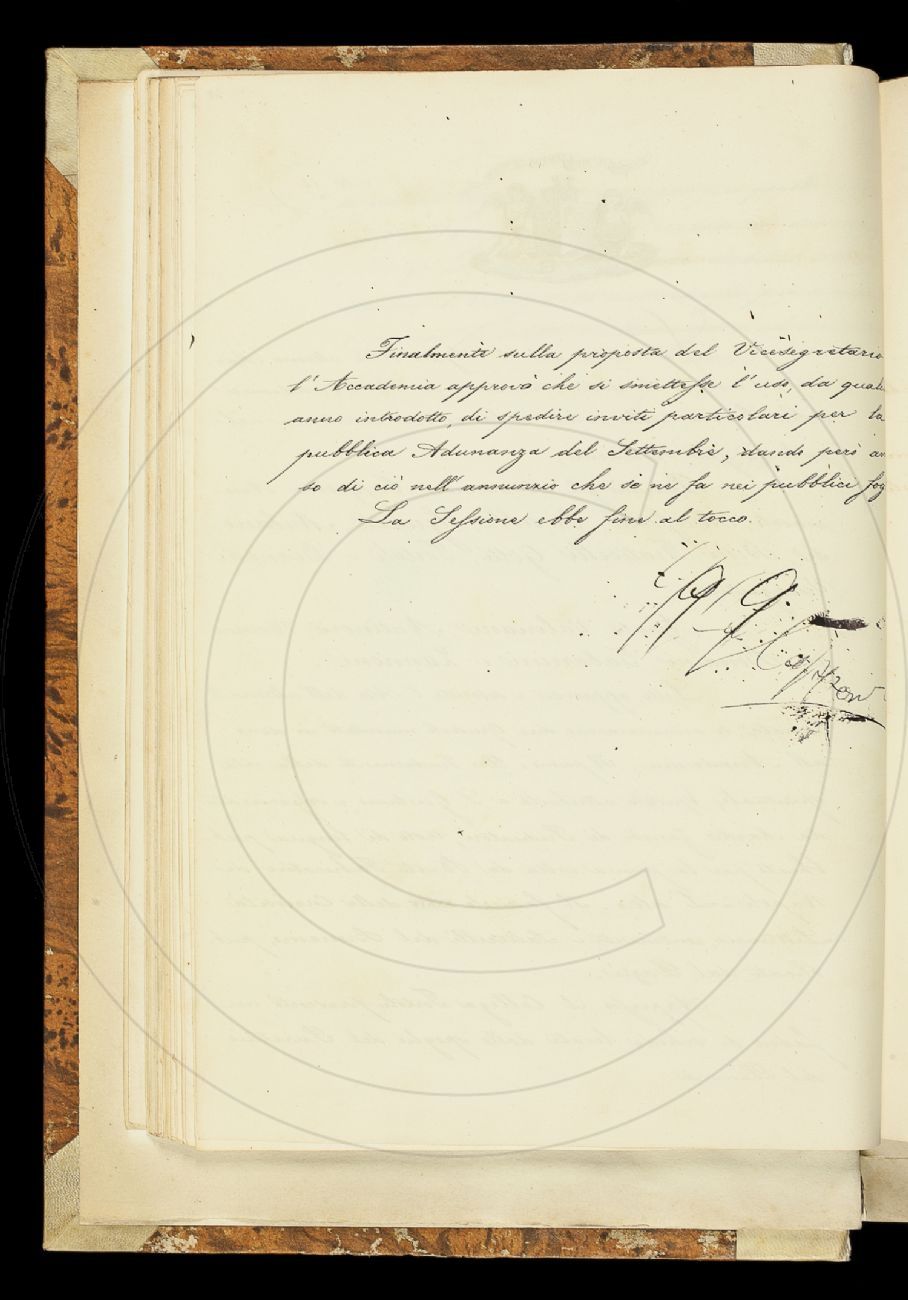 Finalmente sulla proposta del Vicesegretario
l'Accademia approvò che si smettesse l'uso, da qual
anno introdotto, di spedire inviti particolari per la
pubblica Adunanza del Settembre, dando però av
so di ciò nell'annunzio che se ne fa nei pubblici fog
La Sessione ebbe fine al tocco.
Capponi